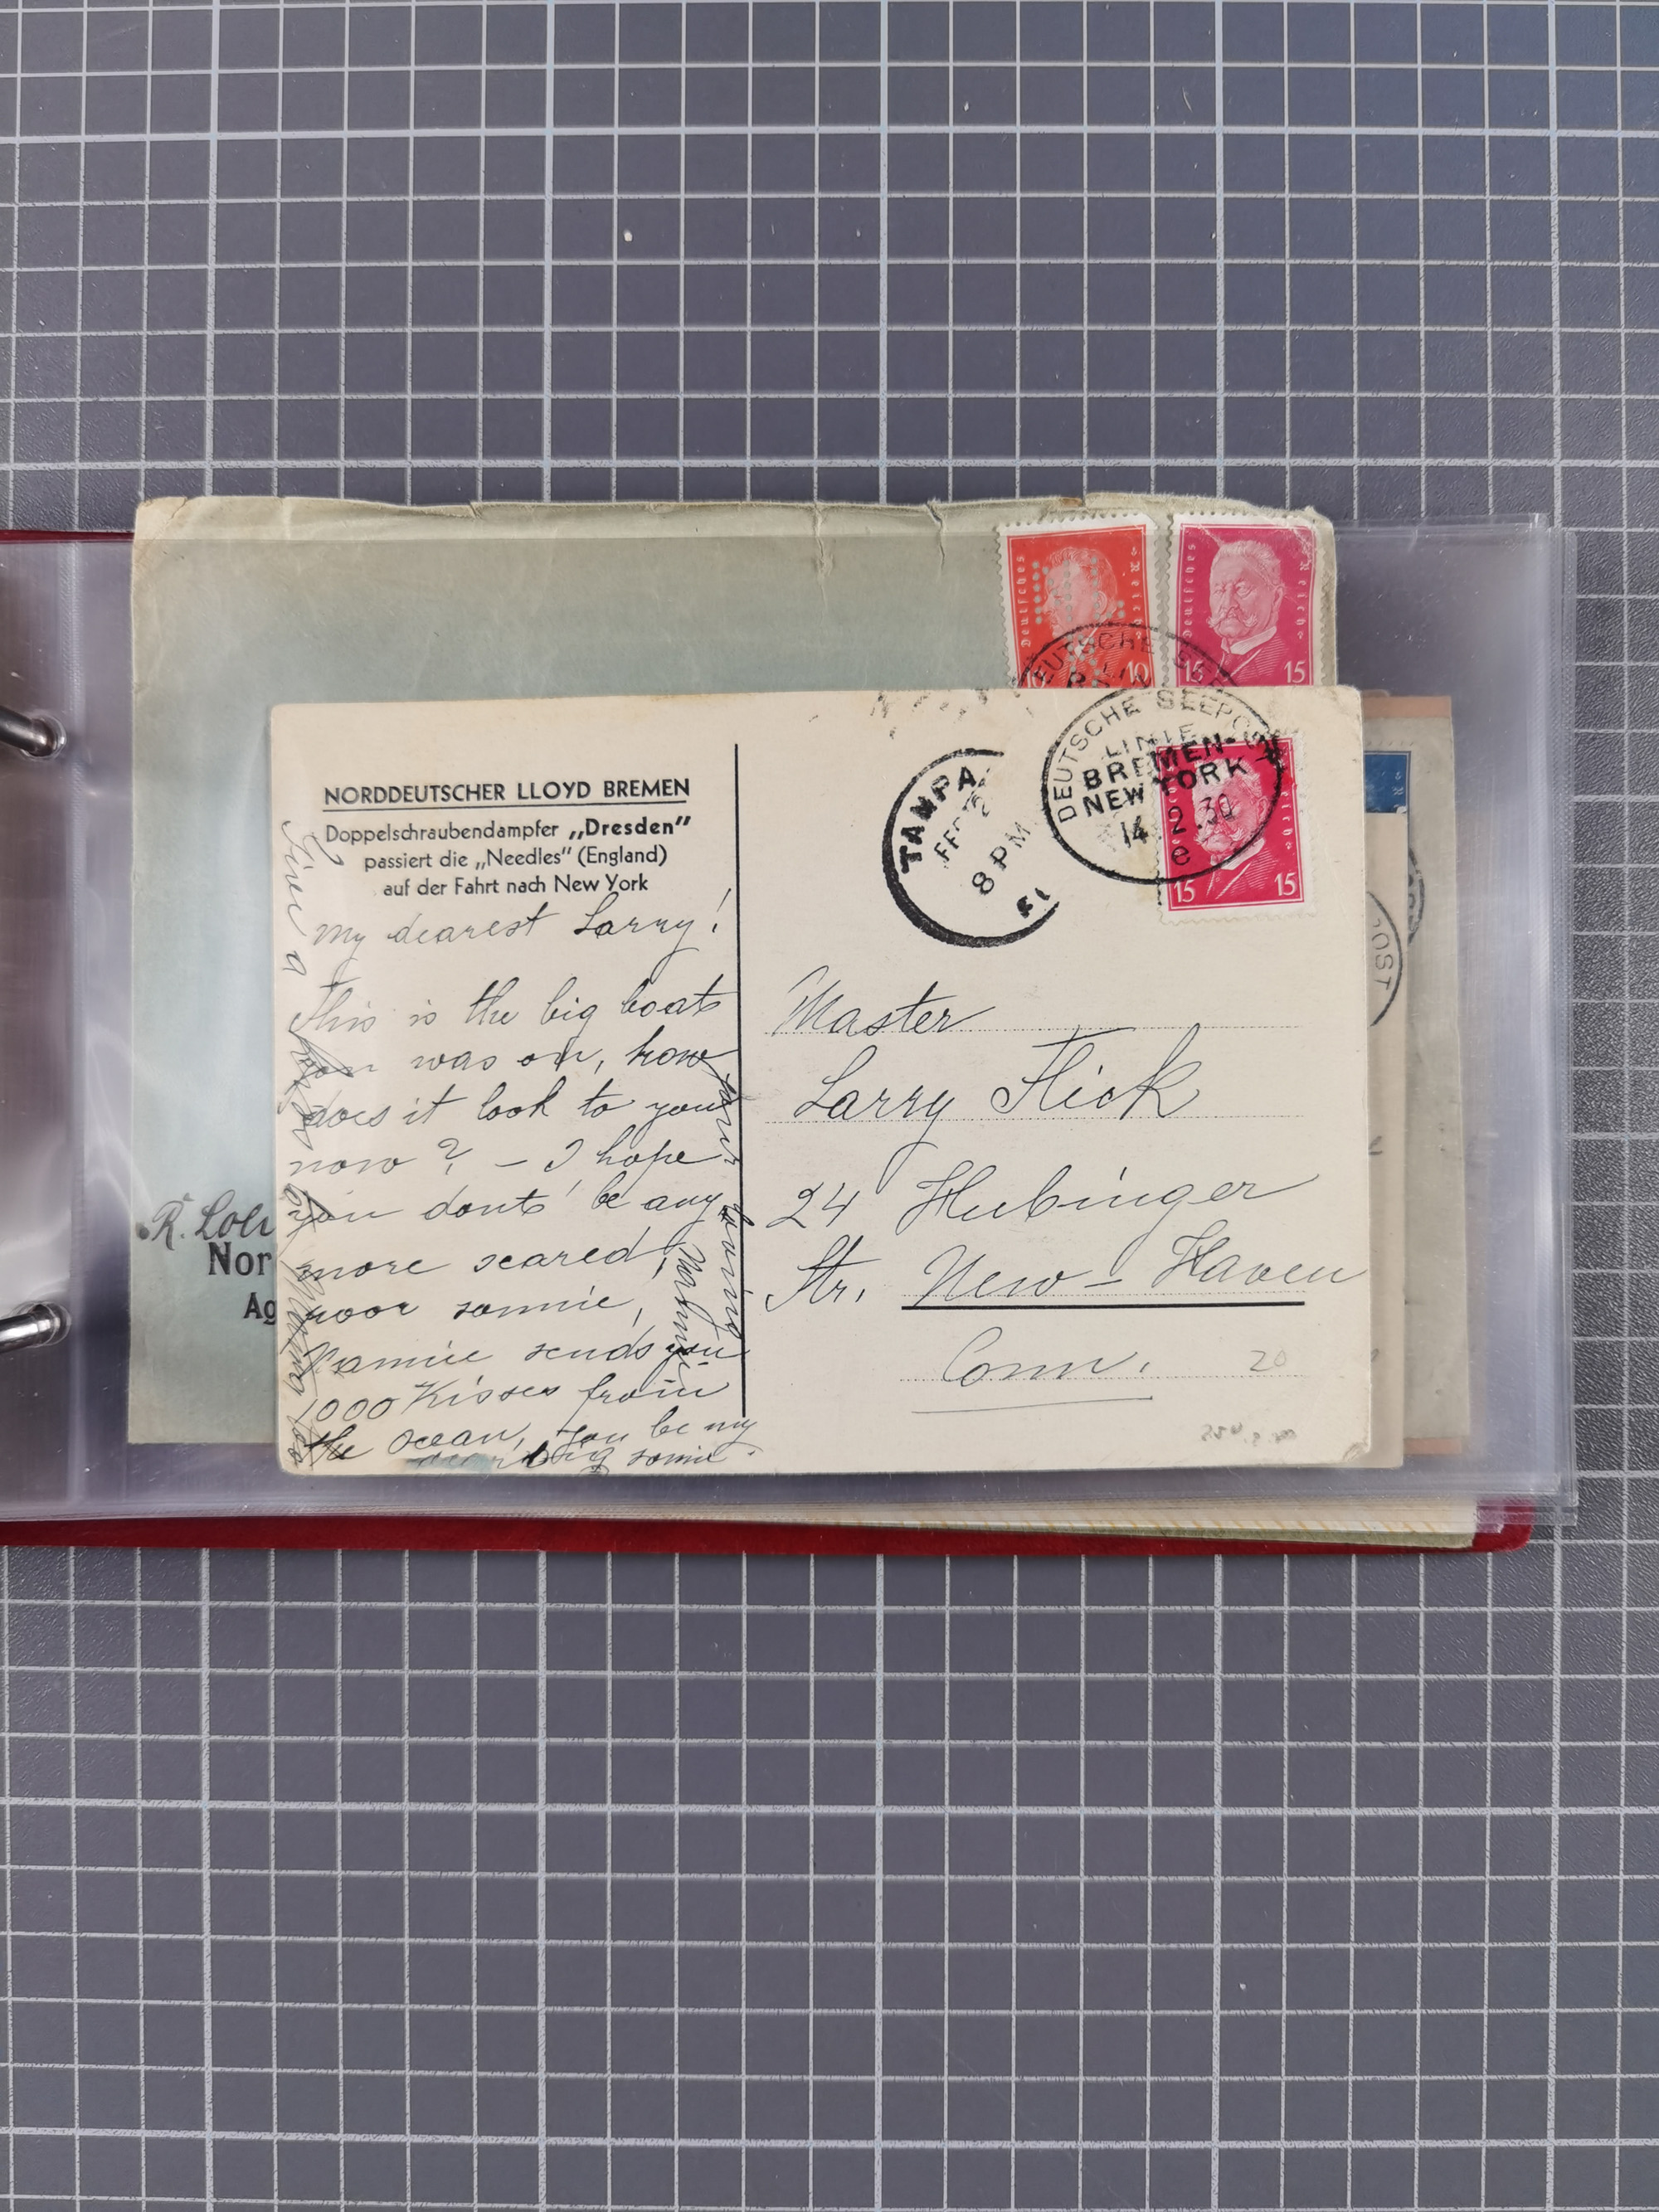 Deutsches Reich
10
Deutsches Reich
15 15
DEUTSCHE
NORDDEUTSCHER LLOYD BREMEN
Doppelschraubendampfer „Dresden”
passiert die „Needles” (England)
auf der Fahrt nach New York
My dearest Larry!
This is the big boat
you was on, how
does it look to you
now? – I hope
you dont' be any
more scared,
poor sonnie,
sends you
1000 Kisses from
the ocean, you be my
big sonnie.
Give a
your loving
TAMPA
FEB
8 PM
FL
DEUTSCHE SEEPOST
LINIE
BREMEN-
NEW YORK
14.2.30
e
15 15
Master
Larry Flick
24 Hubinger
Str. New-Haven
Conn.
20
R.
Nor
Ag
OST